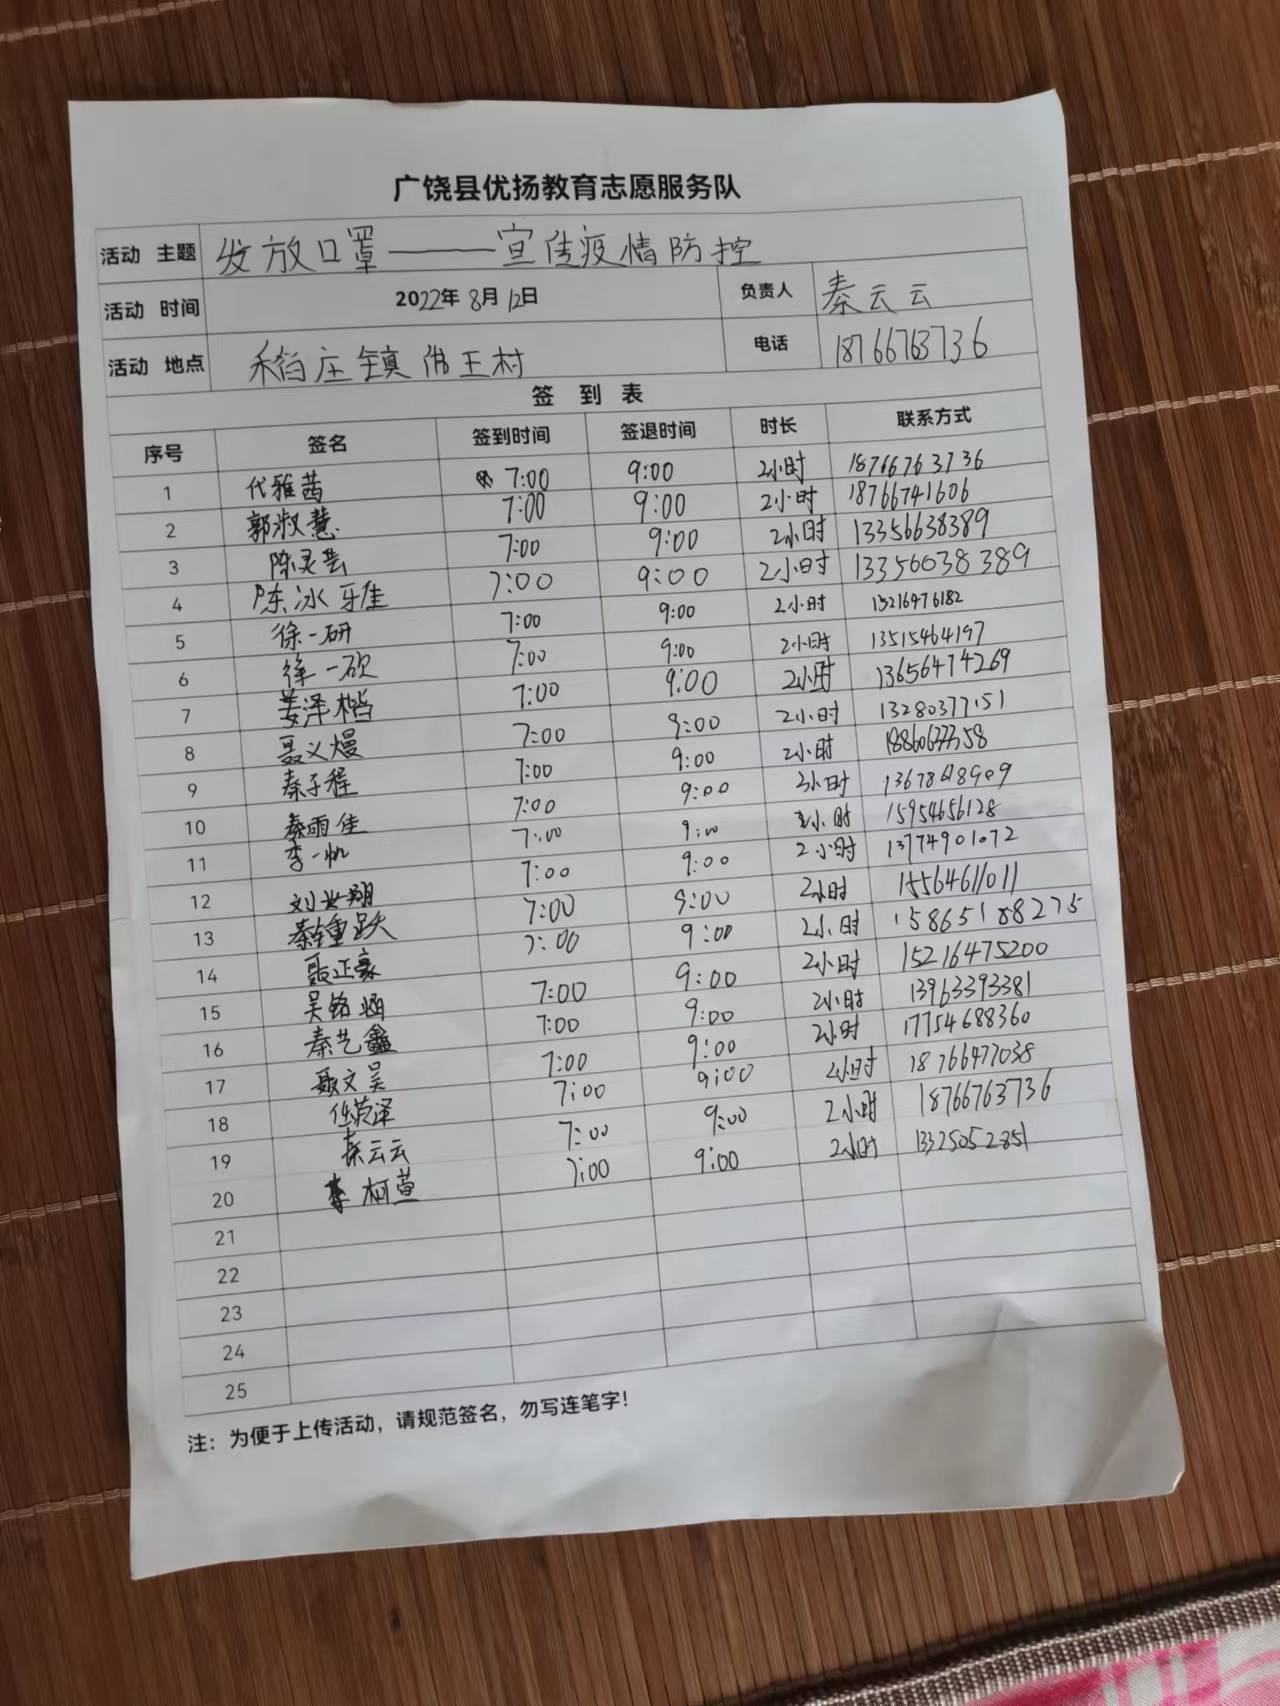 广饶县优扬教育志愿服务队
活动 主题 发放口罩——宣传疫情防控
活动 时间 2022年8月12日 负责人 秦云云
活动 地点 稻庄镇 王村 电话 18766763736
签 到 表
序号 签名 签到时间 签退时间 时长 联系方式
1 代雅茜 7:00 9:00 2小时 18766763736
2 郭淑慧 7:00 9:00 2小时 18766741606
3 陈灵芸 7:00 9:00 2小时 13356638389
4 陈冰雅 7:00 9:00 2小时 13356038389
5 徐一研 7:00 9:00 2小时 15216476182
6 徐一砍 7:00 9:00 2小时 13515464197
7 姜泽楷 7:00 9:00 2小时 13656474269
8 聂义熳 7:00 9:00 2小时 13280377151
9 秦子程 7:00 9:00 2小时
10 秦雨佳 7:00 9:00 2小时
11 李一帆 7:00 9:00 2小时 15954656128
12 刘 翔 7:00 9:00 2小时 13774901072
13 秦钟跃 7:00 9:00 2小时 15564611011
14 聂正豪 7:00 9:00 2小时 15865188275
15 吴铭 7:00 9:00 2小时 15216475200
16 秦艺鑫 7:00 9:00 2小时 13963393381
17 聂文昊 7:00 9:00 2小时 17754688360
18 任 泽 7:00 9:00 2小时 18766477038
19 秦云云 7:00 9:00 2小时 18766763736
20 李柯萱 7:00 9:00 2小时 13325052851
21
22
23
24
25
注：为便于上传活动，请规范签名，勿写连笔字！